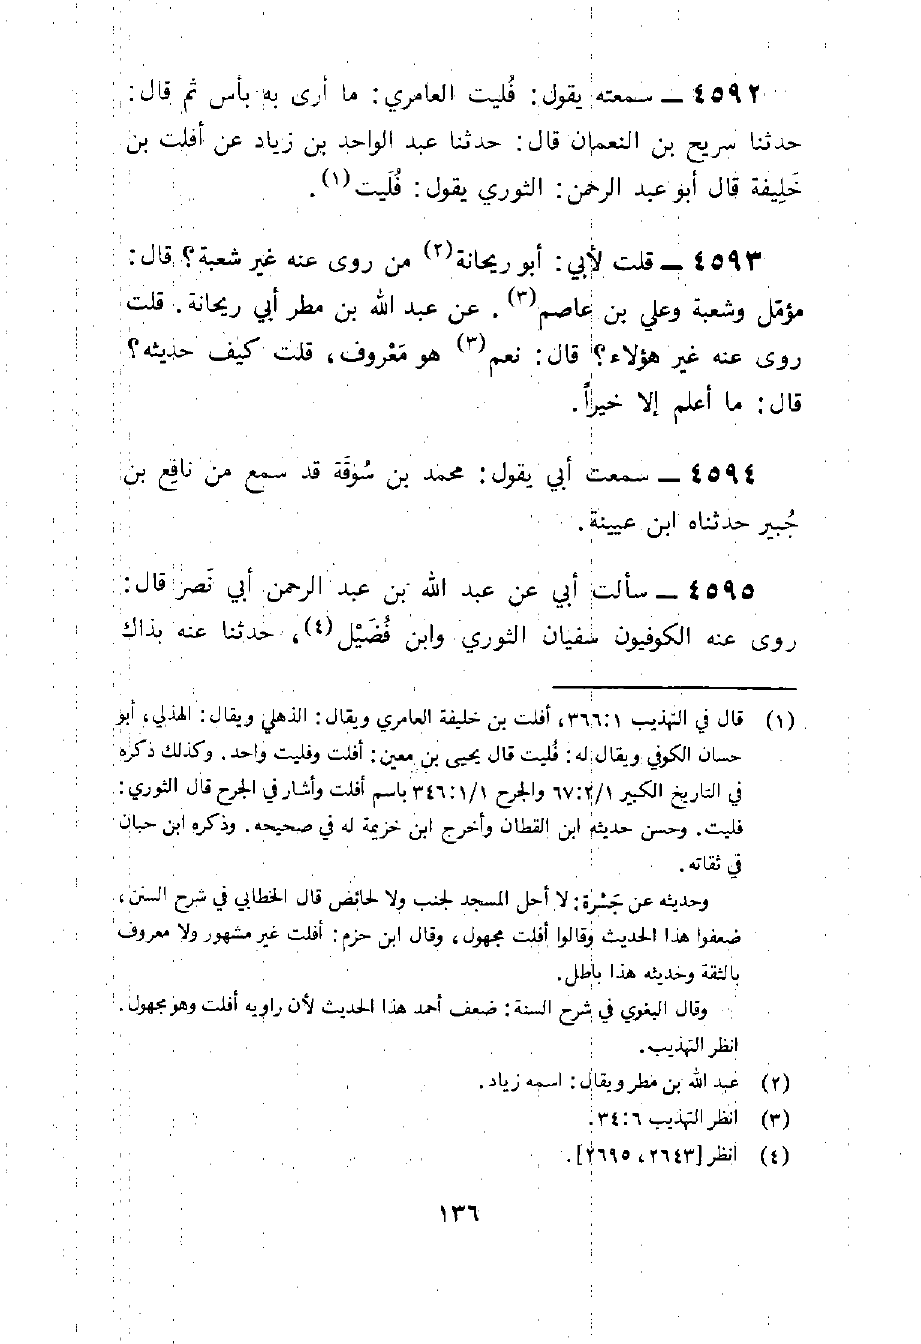 ٤٥٩٢ ـ سمعته يقول: فُليت العامري: ما أرى به بأس ثم قال:
حدثنا سريج بن النعمان قال: حدثنا عبد الواحد بن زياد عن أفلت بن
خَلِيفة قال أبو عبد الرحمن: الثوري يقول: فُلَيت(١).
٤٥٩٣ ـ قلت لأبي: أبو ريحانة(٢) من روى عنه غير شعبة؟ قال:
مؤمّل وشعبة وعلي بن عاصم(٣). عن عبد الله بن مطر أبي ريحانة. قلت
روى عنه غير هؤلاء؟ قال: نعم(٣) هو مَعْروف، قلت كيف حديثه؟
قال: ما أعلم إلا خيراً.
٤٥٩٤ ـ سمعت أبي يقول: محمد بن سُوقَة قد سمع من نافِع بن
جُبير حدثناه ابن عيينة.
٤٥٩٥ ـ سألت أبي عن عبد الله بن عبد الرحمن أبي نَصر قال:
روى عنه الكوفيون سفيان الثوري وابن فُضَيْل(٤)، حدثنا عنه بذاك
(١) قال في التهذيب ٣٦٦:١، أفلت بن خليفة العامري ويقال: الذهلي ويقال: الهذلي، أبو
حسان الكوفي ويقال له: فُليت قال يحيى بن معين: أفلت وفليت واحد. وكذلك ذكره
في التاريخ الكبير ٦٧:٢/١ والجرح ٣٤٦:١/١ باسم أفلت وأشار في الجرح قال الثوري:
فليت. وحسن حديثه ابن القطان وأخرج ابن خزيمة له في صحيحه. وذكره ابن حبان
في ثقاته.
وحديثه عن جَسْرة: لا أحل المسجد لجنب ولا لحائض قال الخطابي في شرح السنن،
ضعفوا هذا الحديث وقالوا أفلت مجهول، وقال ابن حزم: أفلت غير مشهور ولا معروف
بالثقة وحديثه هذا باطل.
وقال البغوي في شرح السنة: ضعف أحمد هذا الحديث لأن راويه أفلت وهو مجهول.
انظر التهذيب.
(٢) عبد الله بن مطر ويقال: اسمه زياد.
(٣) انظر التهذيب ٣٤:٦.
(٤) انظر [٢٦٤٣، ٢٦٩٥].
١٣٦